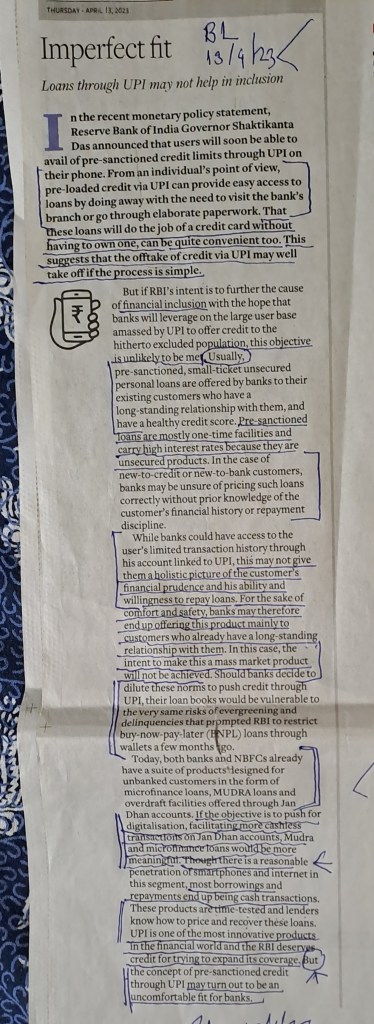 THURSDAY - APRIL 13, 2023
BL
13/4/23
Imperfect fit
Loans through UPI may not help in inclusion
In the recent monetary policy statement,
Reserve Bank of India Governor Shaktikanta
Das announced that users will soon be able to
avail of pre-sanctioned credit limits through UPI on
their phone. From an individual's point of view,
pre-loaded credit via UPI can provide easy access to
loans by doing away with the need to visit the bank's
branch or go through elaborate paperwork. That
these loans will do the job of a credit card without
having to own one, can be quite convenient too. This
suggests that the offtake of credit via UPI may well
take off if the process is simple.
But if RBI's intent is to further the cause
of financial inclusion with the hope that
banks will leverage on the large user base
amassed by UPI to offer credit to the
hitherto excluded population, this objective
is unlikely to be met. Usually,
pre-sanctioned, small-ticket unsecured
personal loans are offered by banks to their
existing customers who have a
long-standing relationship with them, and
have a healthy credit score. Pre-sanctioned
loans are mostly one-time facilities and
carry high interest rates because they are
unsecured products. In the case of
new-to-credit or new-to-bank customers,
banks may be unsure of pricing such loans
correctly without prior knowledge of the
customer's financial history or repayment
discipline.
While banks could have access to the
user's limited transaction history through
his account linked to UPI, this may not give
them a holistic picture of the customer's
financial prudence and his ability and
willingness to repay loans. For the sake of
comfort and safety, banks may therefore
end up offering this product mainly to
customers who already have a long-standing
relationship with them. In this case, the
intent to make this a mass market product
will not be achieved. Should banks decide to
dilute these norms to push credit through
UPI, their loan books would be vulnerable to
the very same risks of evergreening and
delinquencies that prompted RBI to restrict
buy-now-pay-later (BNPL) loans through
wallets a few months ago.
Today, both banks and NBFCs already
have a suite of products designed for
unbanked customers in the form of
microfinance loans, MUDRA loans and
overdraft facilities offered through Jan
Dhan accounts. If the objective is to push for
digitalisation, facilitating more cashless
transactions on Jan Dhan accounts, Mudra
and microfinance loans would be more
meaningful. Though there is a reasonable
penetration of smartphones and internet in
this segment, most borrowings and
repayments end up being cash transactions.
These products are time-tested and lenders
know how to price and recover these loans.
UPI is one of the most innovative products
in the financial world and the RBI deserves
credit for trying to expand its coverage. But
the concept of pre-sanctioned credit
through UPI may turn out to be an
uncomfortable fit for banks.